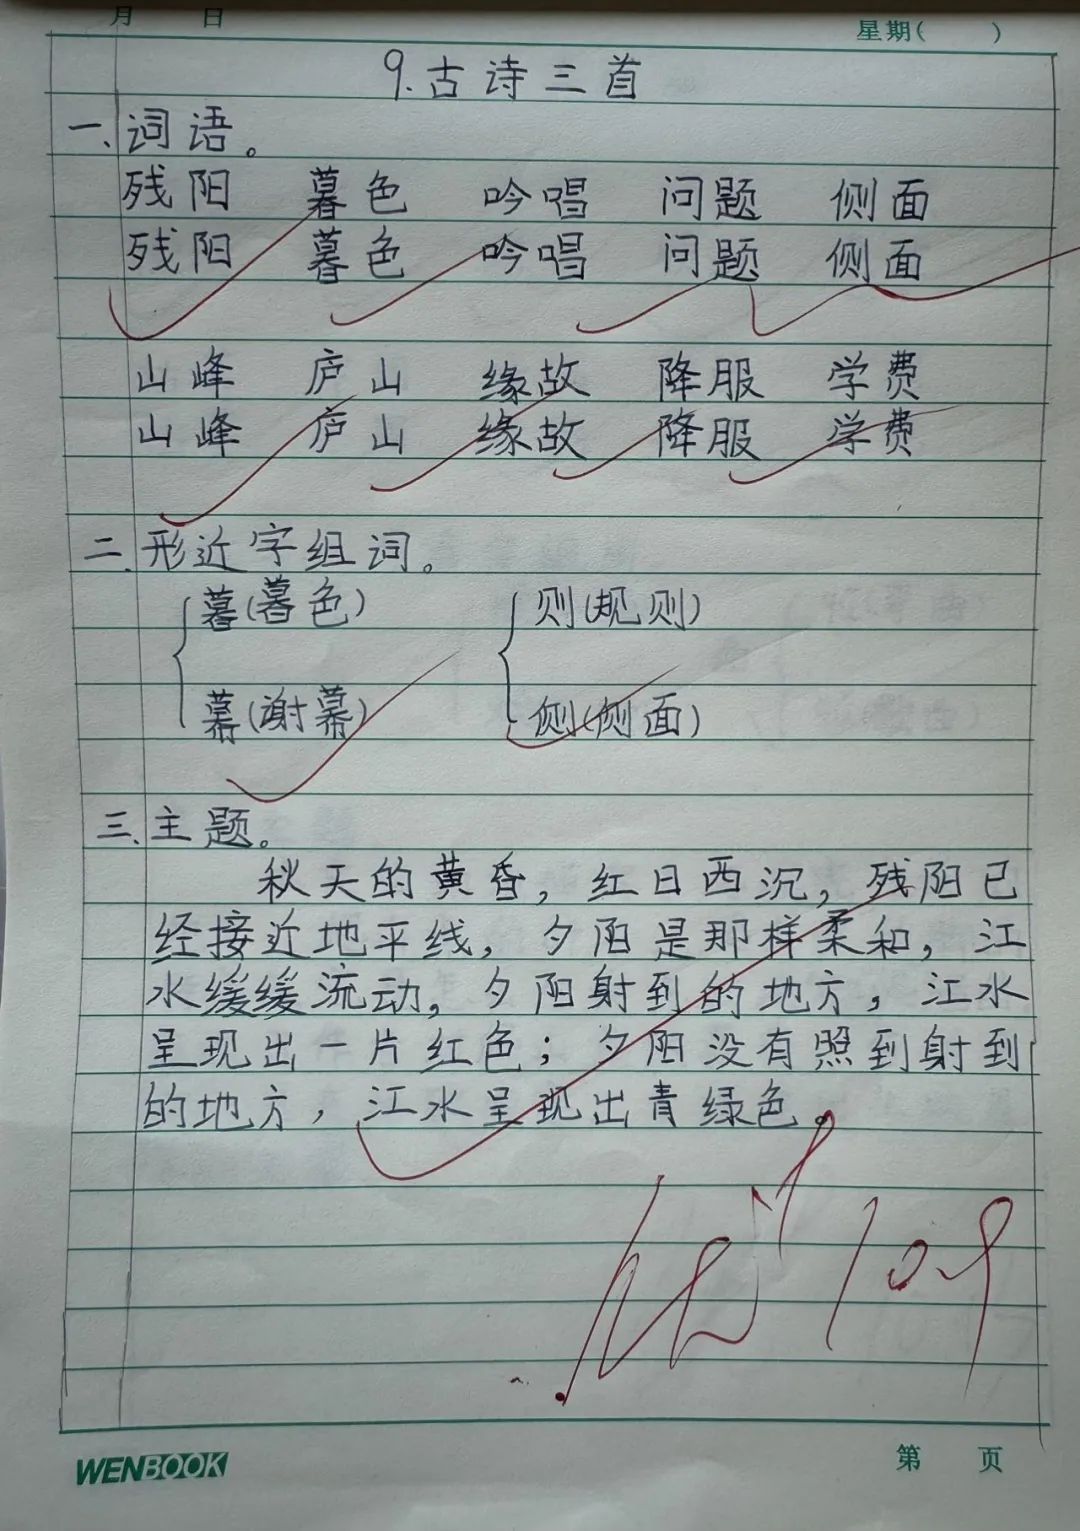 月 日 星期( )
9.古诗三首
一、词语。
残阳 暮色 吟唱 问题 侧面
残阳 暮色 吟唱 问题 侧面
山峰 庐山 缘故 降服 学费
山峰 庐山 缘故 降服 学费
二、形近字组词。
暮(暮色) 则(规则)
幕(谢幕) 侧(侧面)
三、主题。
秋天的黄昏，红日西沉，残阳已
经接近地平线，夕阳是那样柔和，江
水缓缓流动。夕阳射到的地方，江水
呈现出一片红色；夕阳没有照到射到
的地方，江水呈现出青绿色。
10.9
WENBOOK 第 页